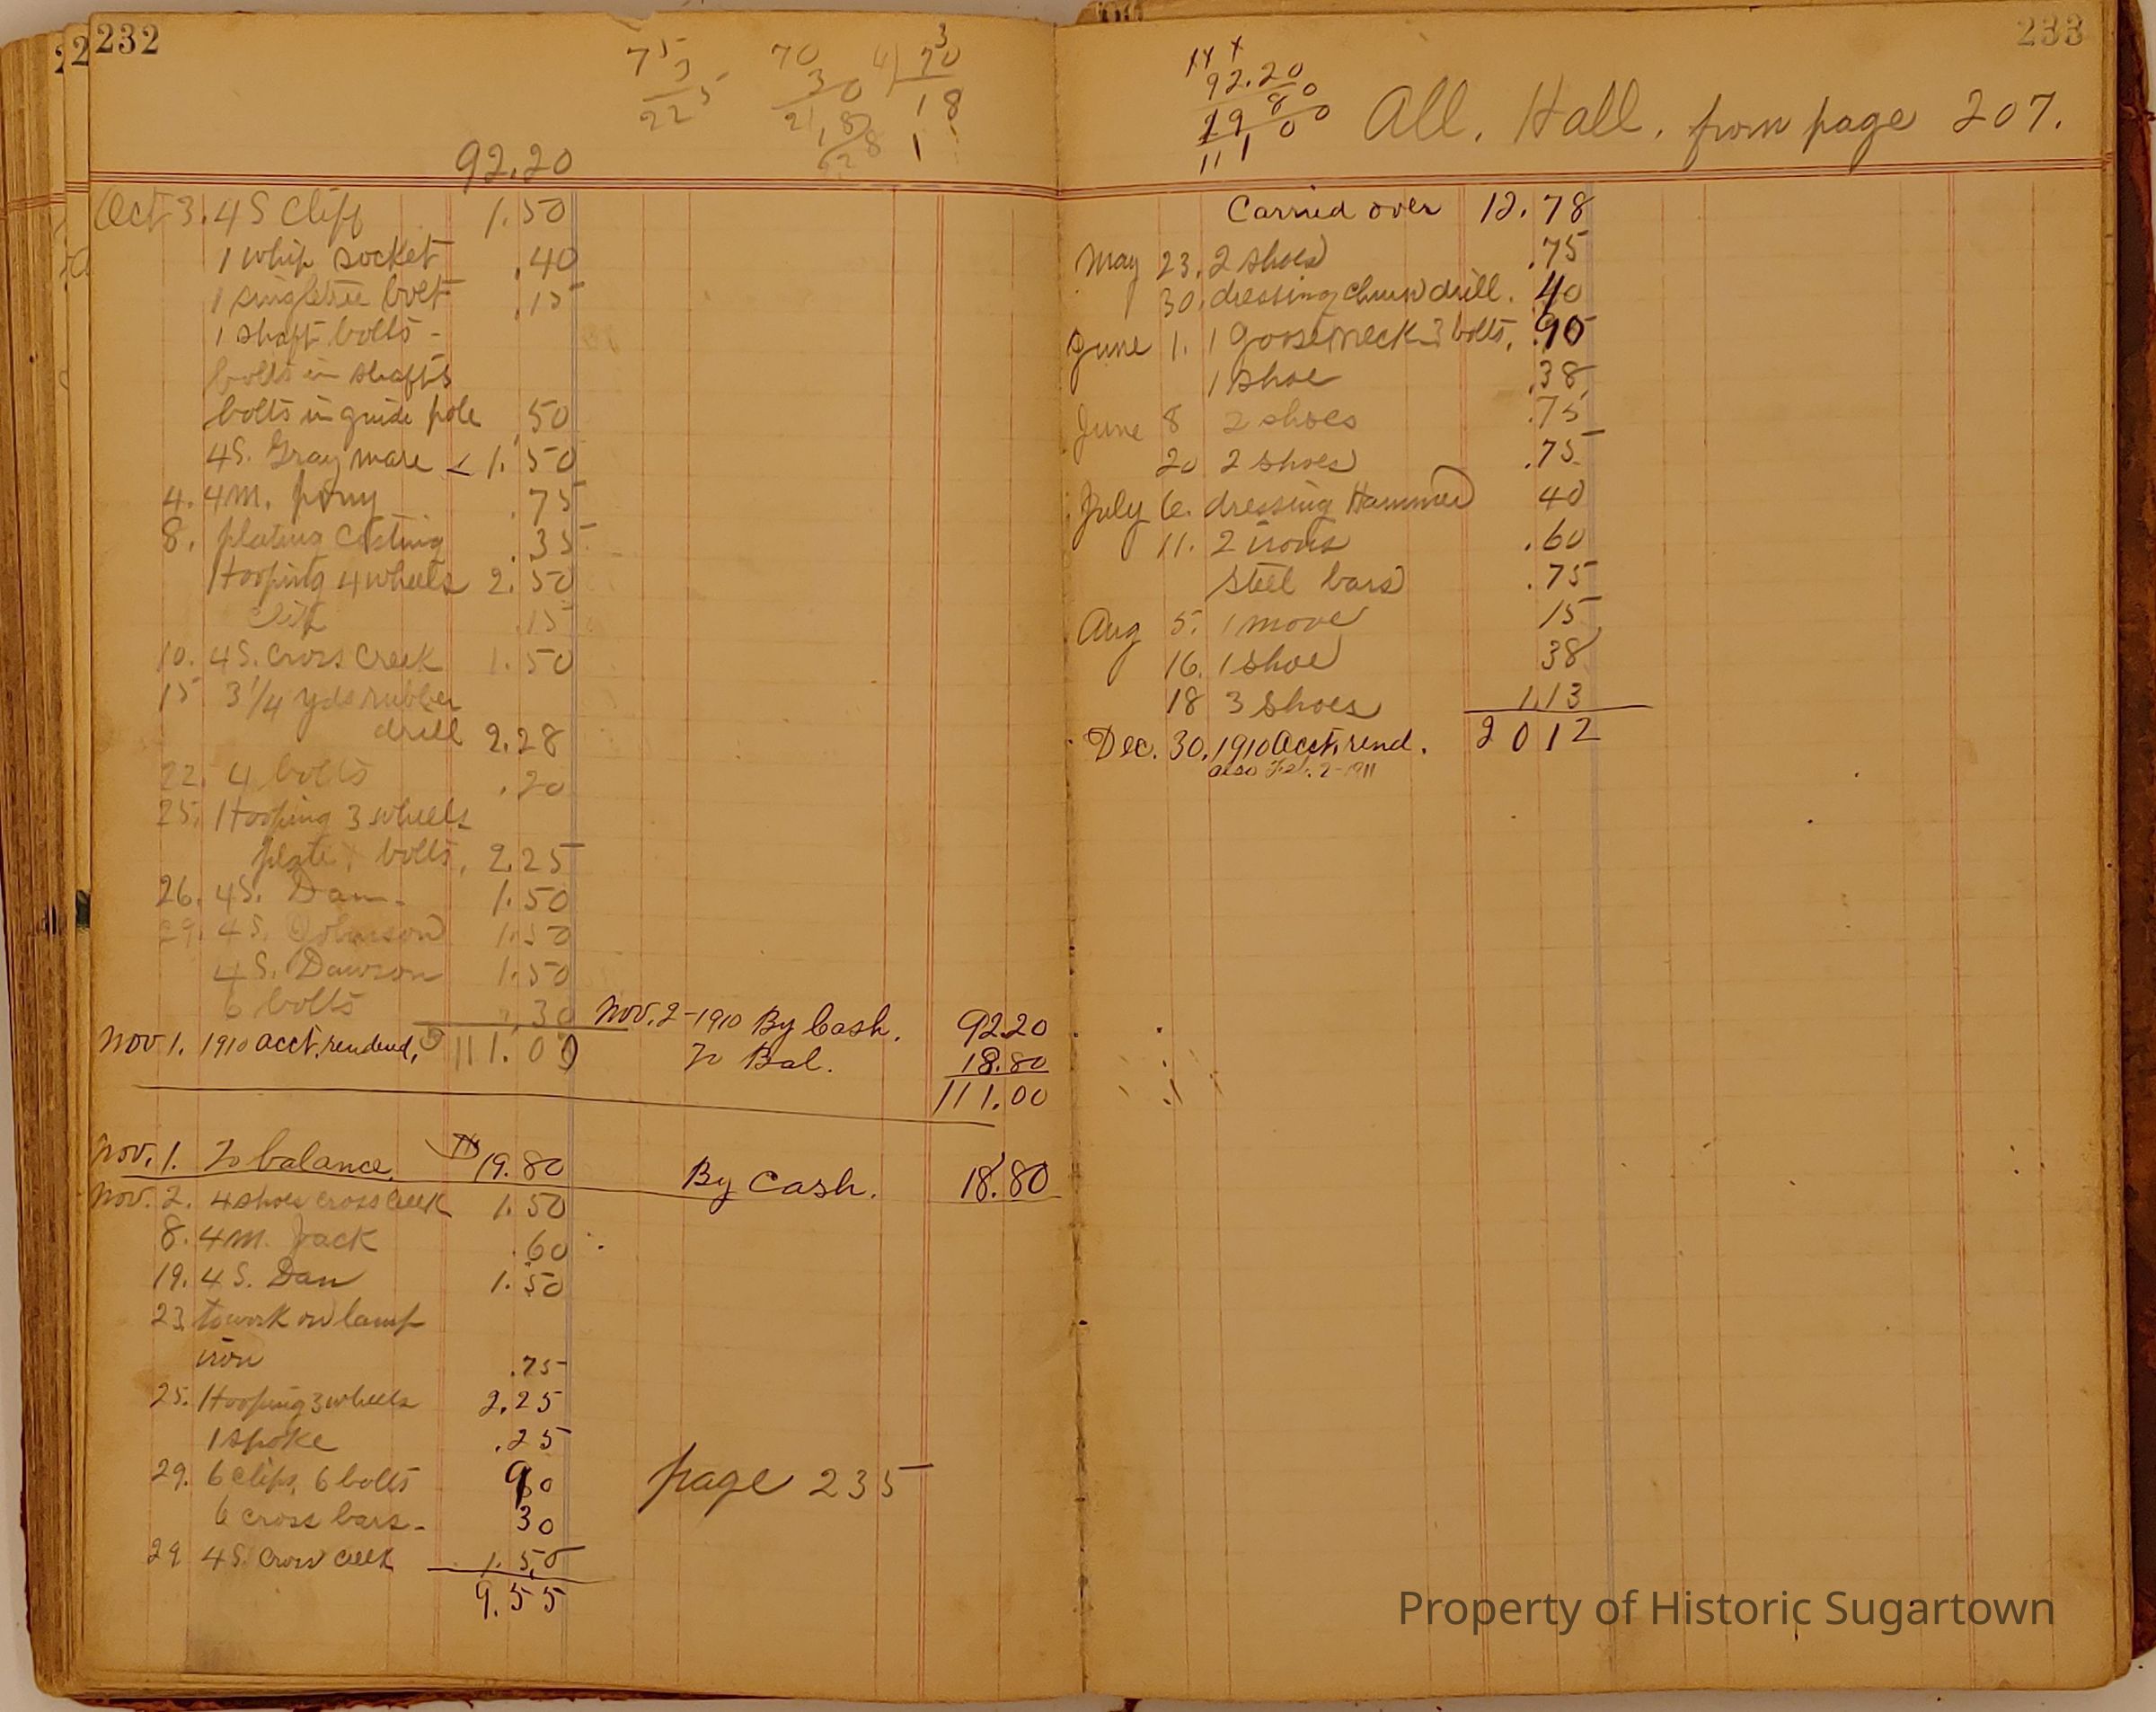 232
75
3
225
70
30
3
70
18
1
92.20
Oct 3. 4 S Cliff 1.50
1 whip socket .40
1 singletree bolt .15
1 shaft bolts -
bolts in shafts
bolts in guide pole .50
4S. Gray mare 1.50
4. 4 M. pony .75
8. plating Casting .35
Hooping 4 wheels 2.50
clip .15
10. 4S. Cross Creek 1.50
15 3 1/4 yds rubber
drill 2.28
22. 4 bolts .20
25. Hooping 3 wheels
plate, bolts, 2.25
26. 4S. Dan - 1.50
29. 4 S. Johnson 1.50
4 S. Dawson 1.50
6 bolts .30
Nov 1. 1910 acct. rendend, 111.00
Nov. 2 - 1910 By Cash. 92.20
To Bal. 18.80
111.00
Nov. 1. To balance. 19.80
By Cash. 18.80
Nov. 2. 4 shoes cross Creek 1.50
8. 4 M. Jack .60
19. 4 S. Dan 1.50
23. to work on lamp
iron .75
25. Hooping 3 wheels 2.25
1 spoke .25
29. 6 clips, 6 bolts 90
6 cross bars - 30
29 4 S. Cross Creek 1.50
9.55
page 235
233
92.20
19 80
111 00
All. Hall. from page 207.
Carried over 12.78
May 23. 2 shoes .75
30. dressing churn drill. 40
June 1. 1 gooseneck 3 bolts, .90
1 shoe .38
June 8 2 shoes .75
20 2 shoes .75
July 6. dressing Hammer 40
11. 2 irons .60
steel bars .75
Aug 5. 1 move 15
16. 1 shoe 38
18 3 shoes 1.13
Dec. 30, 1910 Acct. rend. 2012
also Feb. 2 - 1911
Property of Historic Sugartown